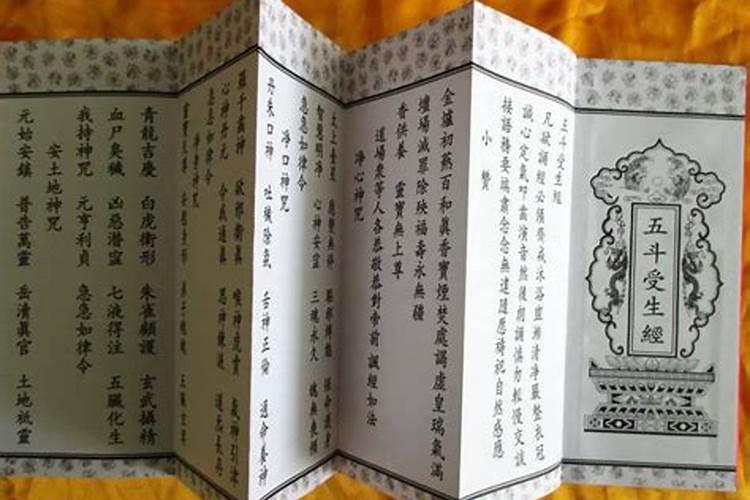 五斗受生經
五斗受生經
凡欲誦經必須齋戒沐浴盥漱清淨嚴整衣冠
誠心定氣叩齒演音然後朗誦慎勿輕慢交談
接語務要端肅念念無違隨愿禱祀自然感應
小讚
金爐初爇百和眞香寶煙焚處謁虛皇瑞氣滿
壇場滅罪除殃福壽永無疆
香供養 靈寶無上尊
道場衆等人各恭敬恭對帝前 誦經如法
淨心神咒
太上台星 應變無停 驅邪縛魅 保命護身
智慧明淨 心神安寧 三魂永久 魄無喪傾
急急如律令
淨口神咒
丹朱口神 吐穢除氛 舌神正倫 通命養神
羅千齒神 却邪衛眞 喉神虎賁 氣神引津
心神丹元 令我通眞 思神鍊液 道炁長存
急急如律令
淨身神咒
靈寶天尊 安慰身形 弟子魂魄 五臟玄冥
青龍吉慶 白虎衛形 朱雀顧護 玄武攝精
血尸臭穢 凶惡潛寧 七液得注 五臟化生
我持神咒 元亨利貞 急急如律令
安土地神咒
元始安鎮 普告萬靈 岳瀆眞官 土地祗靈